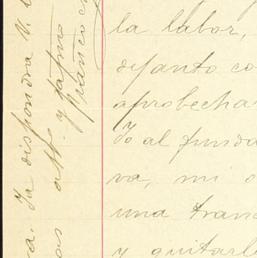 la labor,
defanto co
aprobechar
Yo al funda
va, mi o
una franc
y quitarle
Ya dispondra V.
aff. y
franco